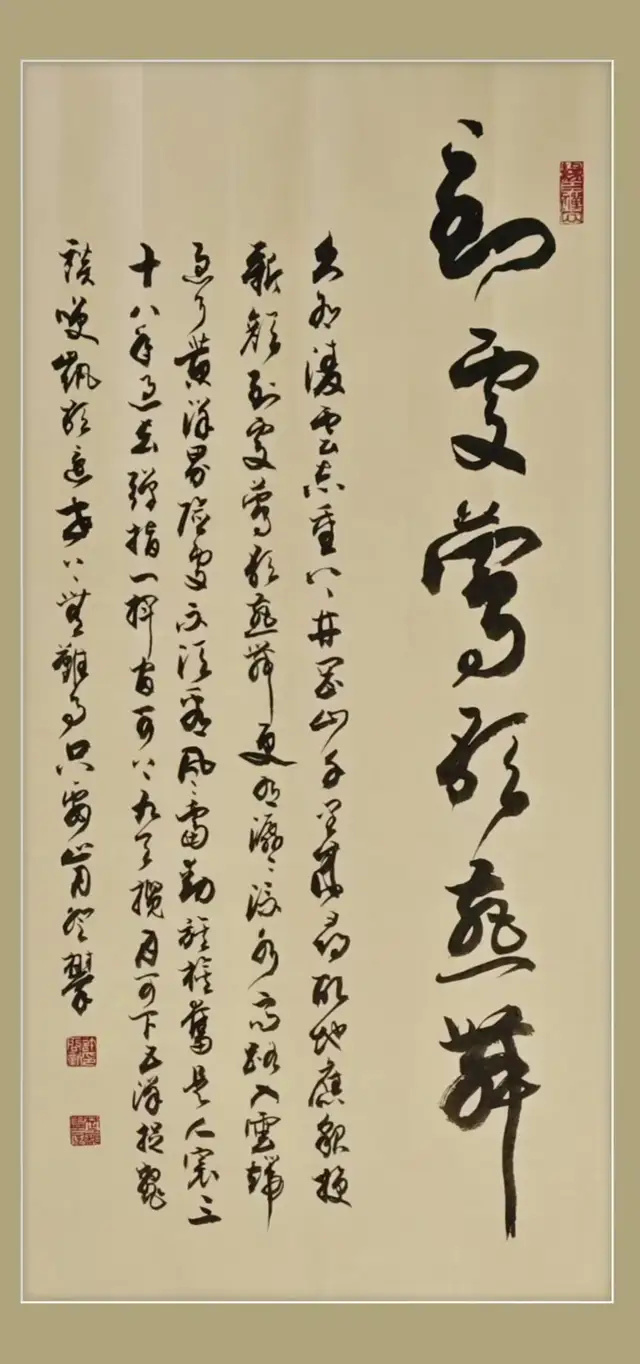 到處鶯歌燕舞
久有凌雲志重上井岡山千里來尋故地舊貌變
新顏到處鶯歌燕舞更有潺潺流水高路入雲端
過了黃洋界險處不須看風雷動旌旗奮是人寰三
十八年過去彈指一揮間可上九天攬月可下五洋捉鱉
談笑凱歌還世上無難事只要肯登攀